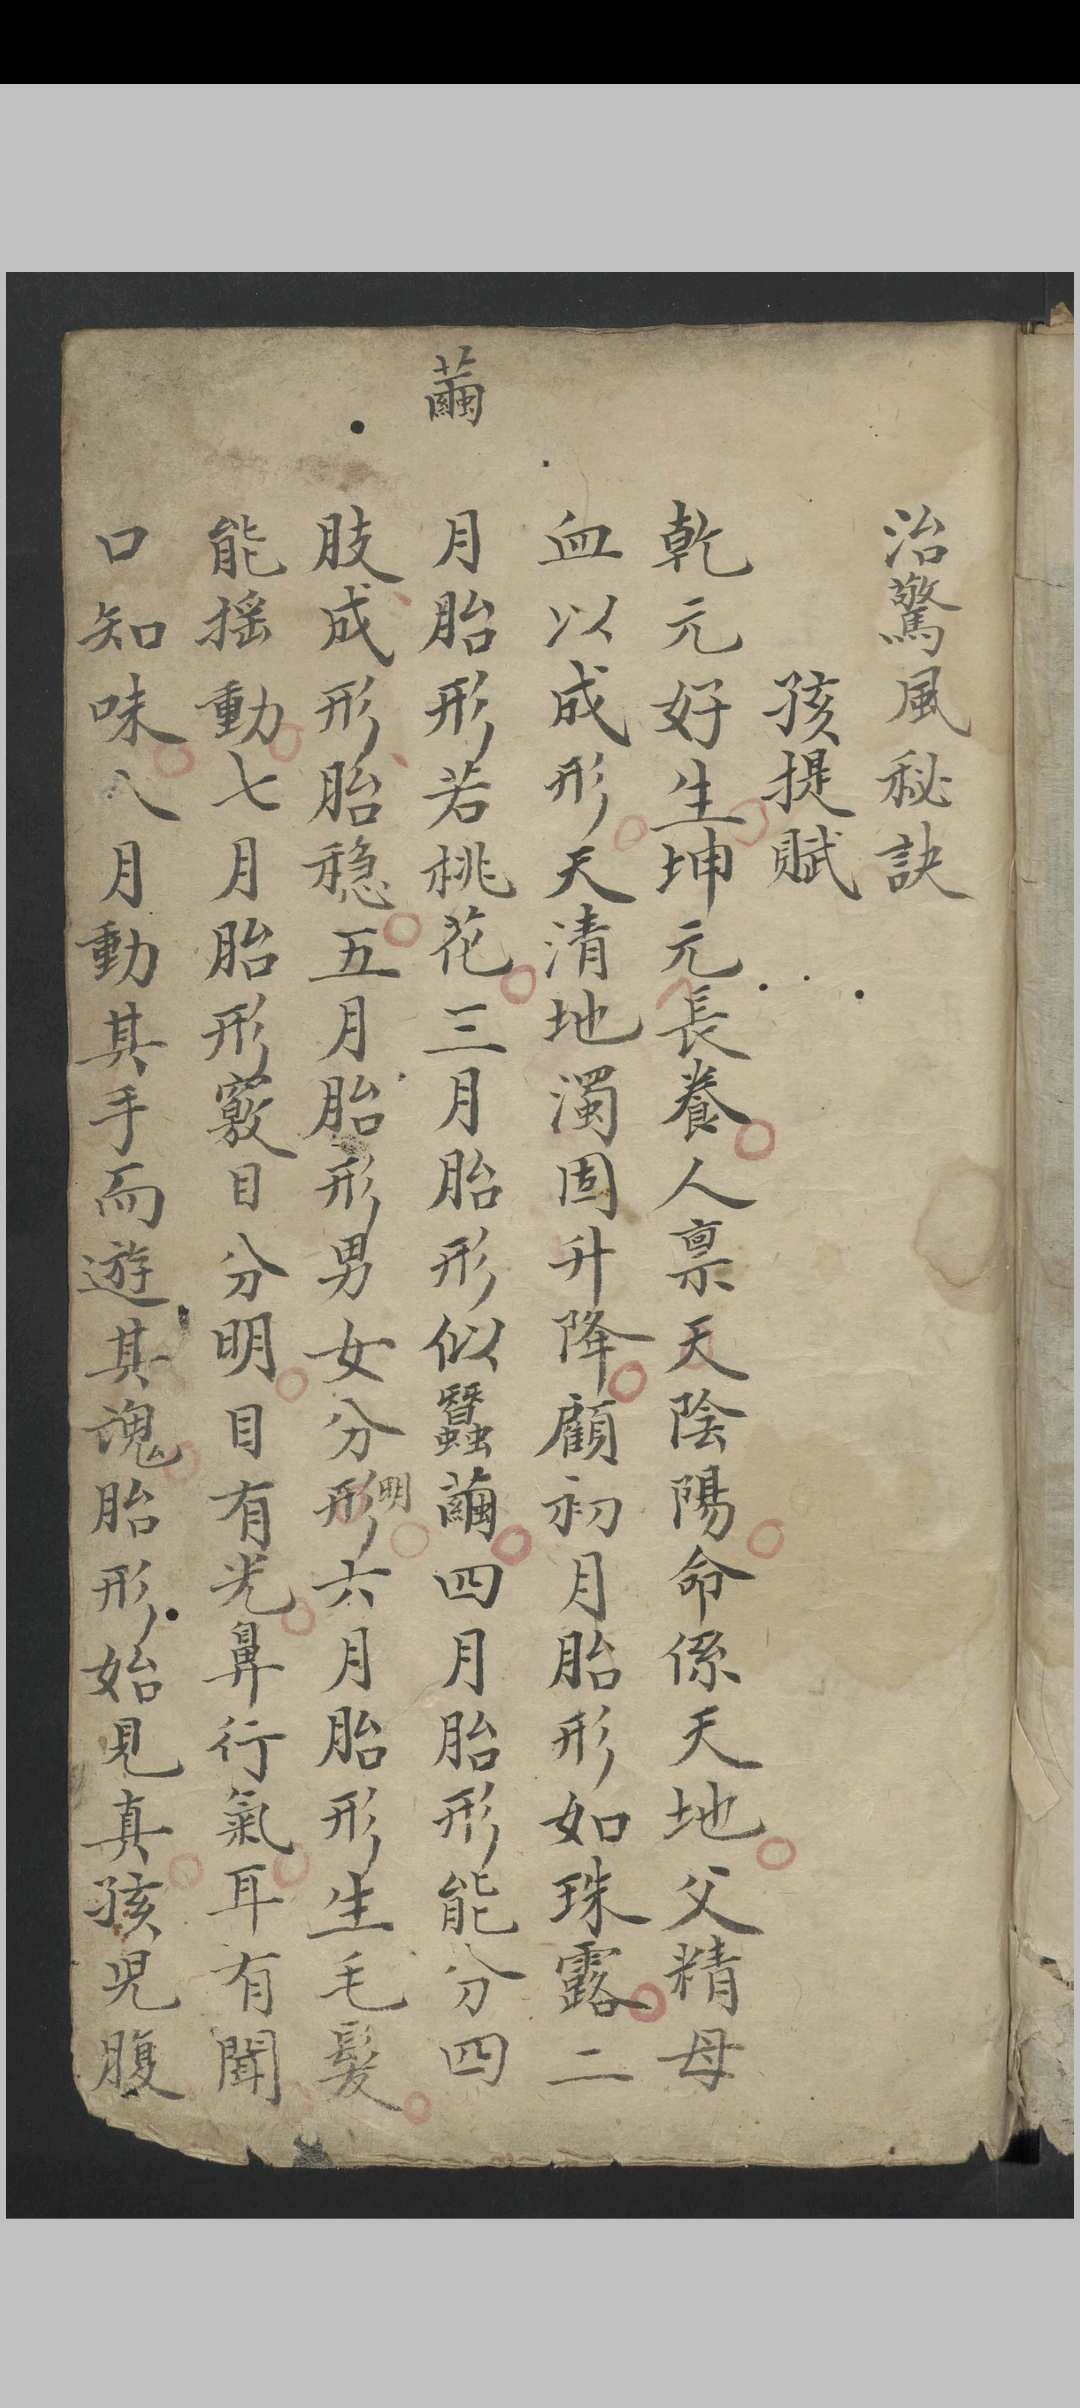 治驚風秘訣
孩提賦
乾元好生坤元長養人禀天陰陽命係天地父精母
血以成形天清地濁固升降顧初月胎形如珠露二
繭
月胎形若桃花三月胎形似蠶繭四月胎形能分四
肢成形胎穩五月胎形男女分形明六月胎形生毛髮
能摇動七月胎形竅目分明目有光鼻行氣耳有聞
口知味八月動其手而遊其魂胎形始見真孩児腹